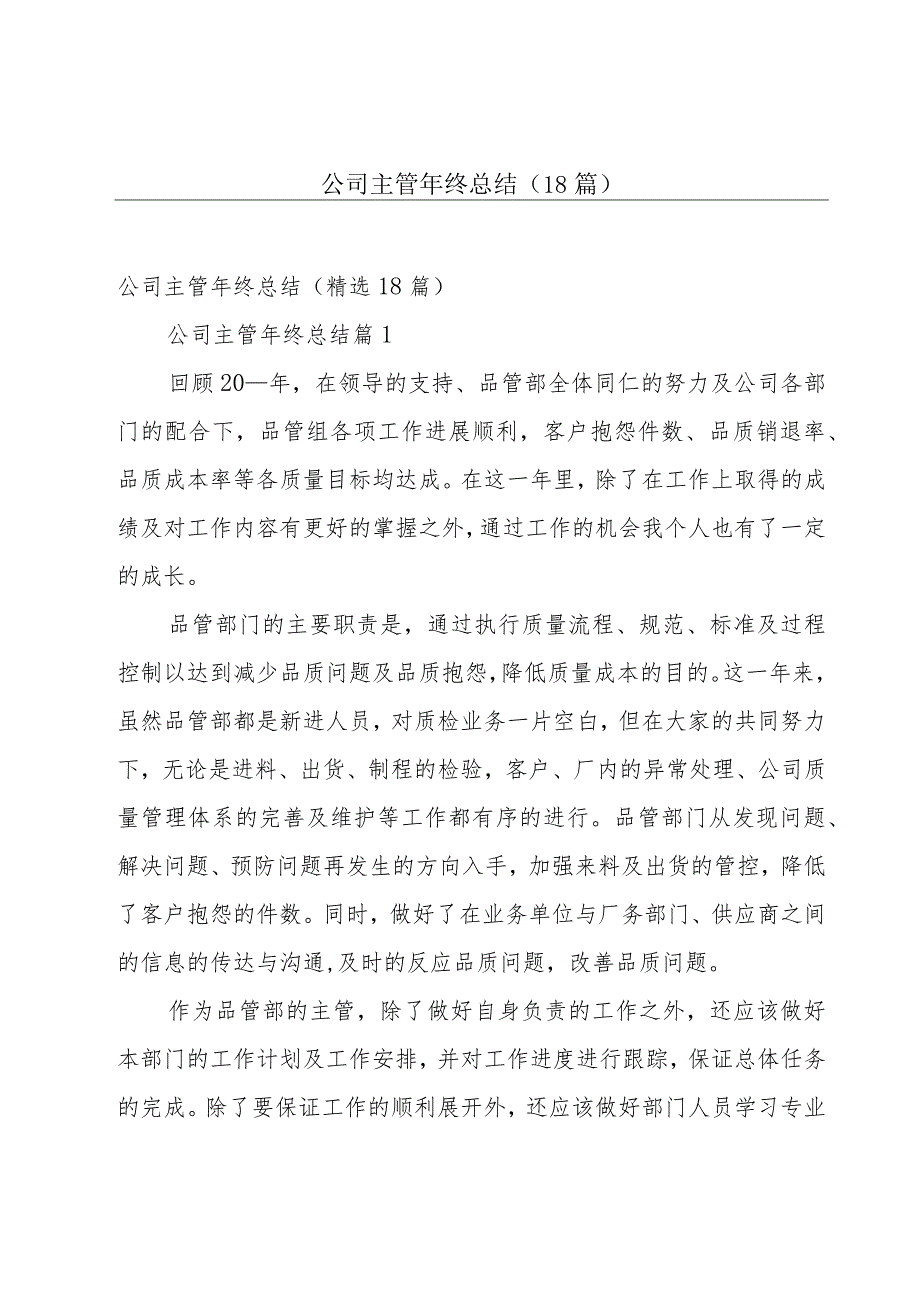 公司主管年终总结（18 篇）
公司主管年终总结（精选 18 篇）
公司主管年终总结篇 1
回顾 20—年，在领导的支持、品管部全体同仁的努力及公司各部
门的配合下，品管组各项工作进展顺利，客户抱怨件数、品质销退率、
品质成本率等各质量目标均达成。在这一年里，除了在工作上取得的成
绩及对工作内容有更好的掌握之外，通过工作的机会我个人也有了一定
的成长。
品管部门的主要职责是，通过执行质量流程、规范、标准及过程
控制以达到减少品质问题及品质抱怨，降低质量成本的目的。这一年来，
虽然品管部都是新进人员，对质检业务一片空白，但在大家的共同努力
下，无论是进料、出货、制程的检验，客户、厂内的异常处理、公司质
量管理体系的完善及维护等工作都有序的进行。品管部门从发现问题、
解决问题、预防问题再发生的方向入手，加强来料及出货的管控，降低
了客户抱怨的件数。同时，做好了在业务单位与厂务部门、供应商之间
的信息的传达与沟通,及时的反应品质问题，改善品质问题。
作为品管部的主管，除了做好自身负责的工作之外，还应该做好
本部门的工作计划及工作安排，并对工作进度进行跟踪，保证总体任务
的完成。除了要保证工作的顺利展开外，还应该做好部门人员学习专业